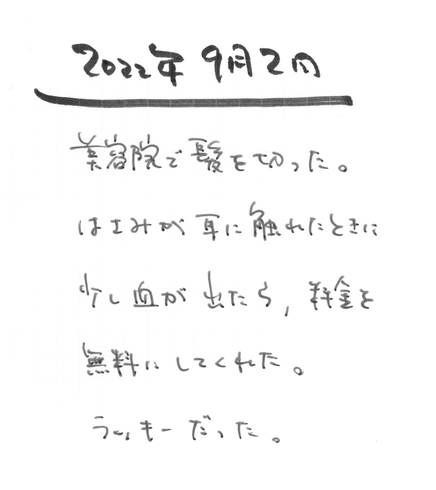 2022年9月2日
美容院で髪を切った。
はさみが耳に触れたときに
少し血が出たら,料金を
無料にしてくれた。
ラッキーだった。